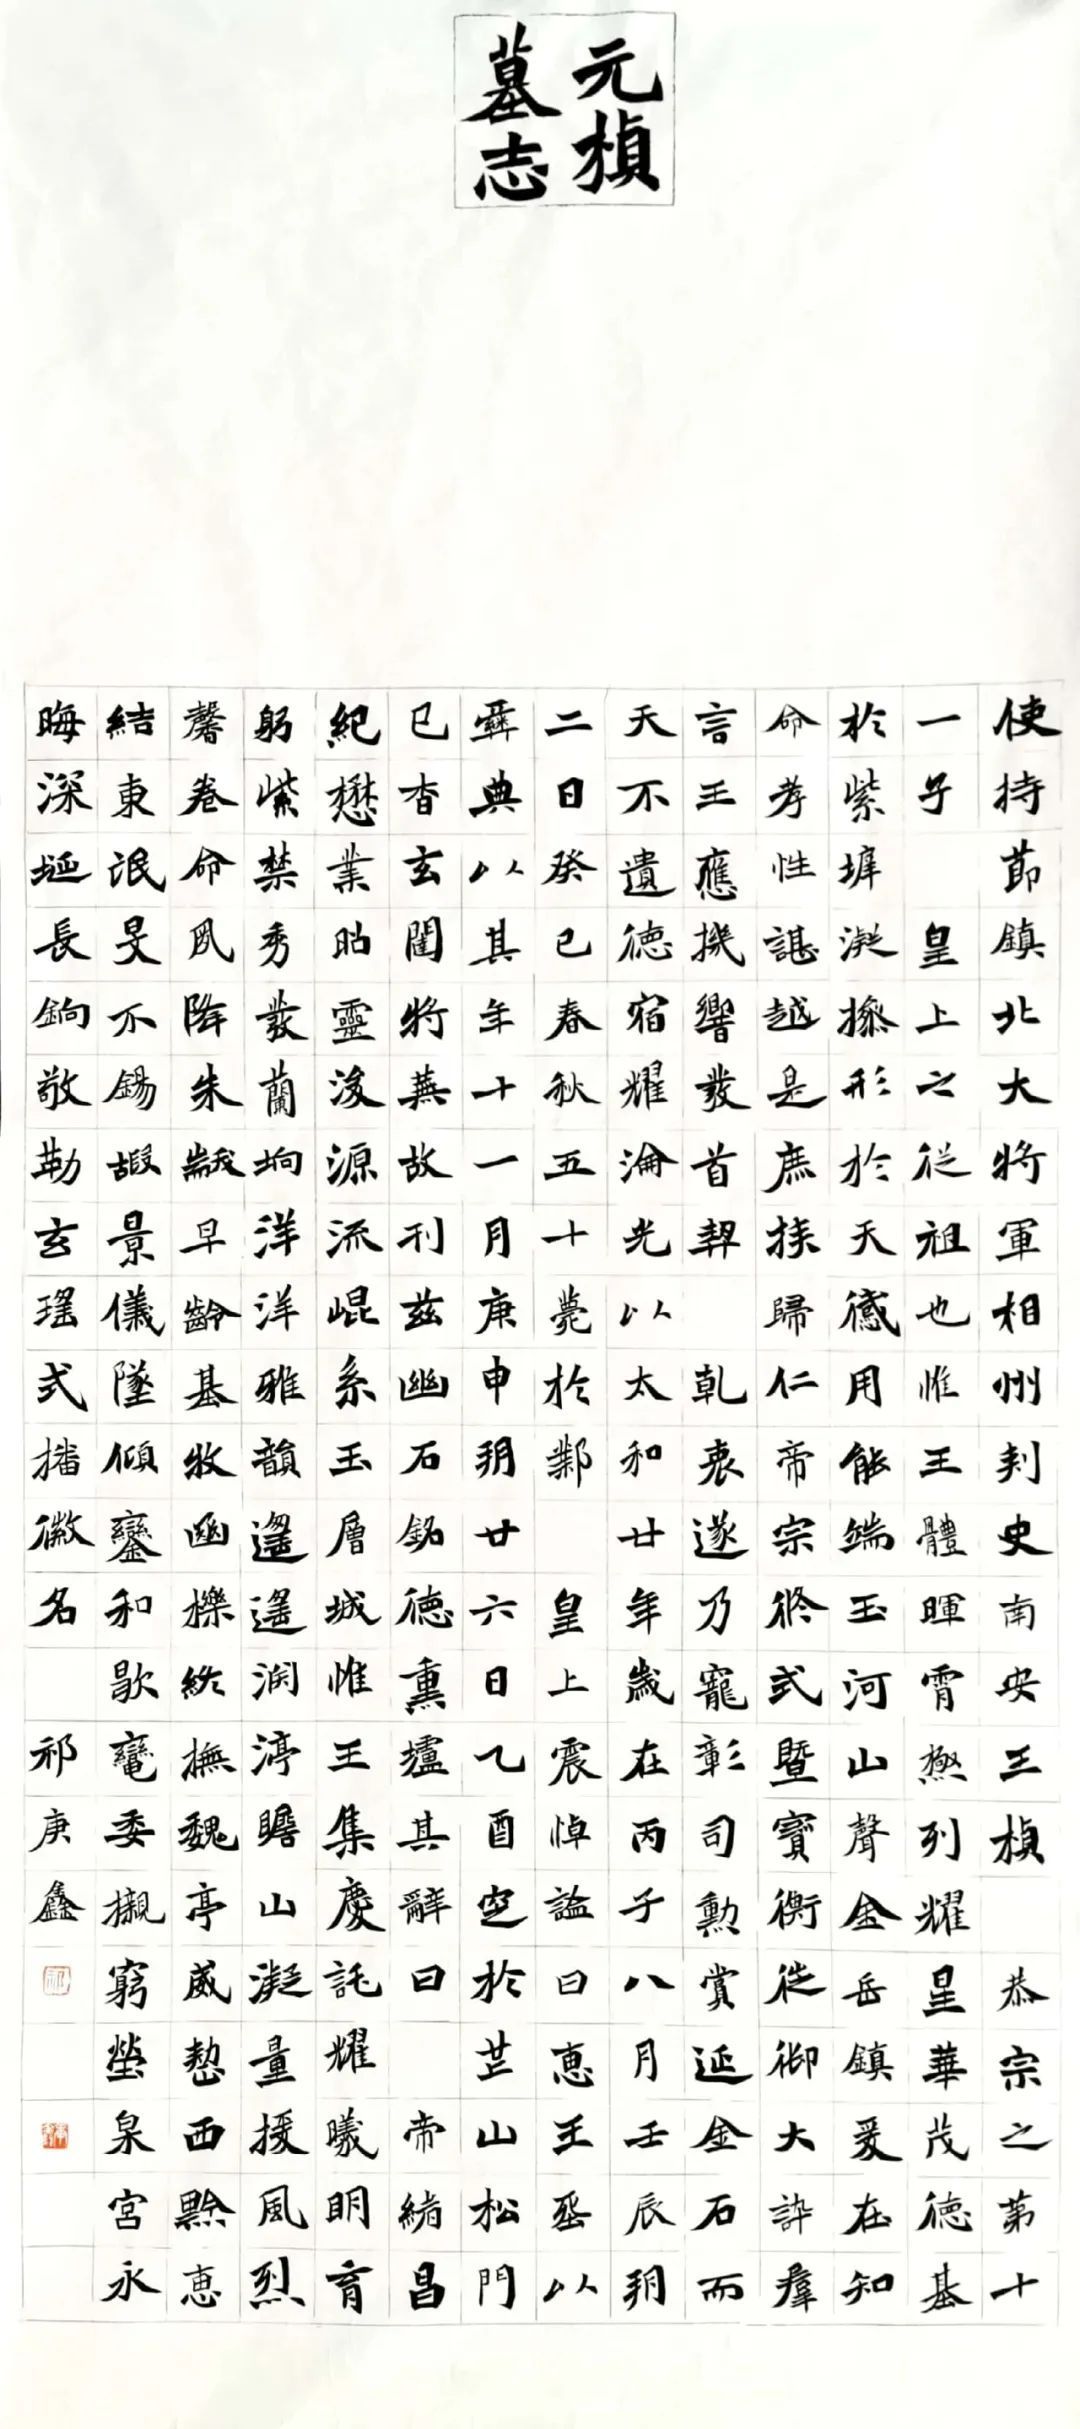 元楨
墓志
使持節鎮北大將軍相州刾史南安王楨 恭宗之第十
一子 皇上之從祖也惟王體暉霄極列耀星華茂德基
於紫墀凝操形於天感用能端玉河山聲金岳鎮爰在知
命孝性諶越是庶族歸仁帝宗終式暨寶衡徙御大訬羣
言王應機響發首契 乾衷遂乃寵彰司勳賞延金石而
天不遺德宿耀淪光以太和廿年歲在丙子八月壬辰朔
二日癸巳春秋五十薨於鄴 皇上震悼諡曰惠王塟以
彞典以其年十一月庚申朔廿六日乙酉窆於芒山松門
已杳玄闥將蕪故刊兹幽石銘德熏壚其辭曰 帝緒昌
紀懋業昭靈浚源流崐系玉層城惟王集慶託耀曦明育
躬紫禁秀發蘭坰洋洋雅韻遥遥淵渟瞻山凝量援風烈
馨卷命夙降朱黻早齡基牧幽櫟終撫魏亭威愬西黥惠
結東氓旻不錫嘏景儀墜傾鑾和歇鞃委櫬窮塋泉宫永
晦深埏長鉤敬勒玄瑤式播徽名 祁庚鑫